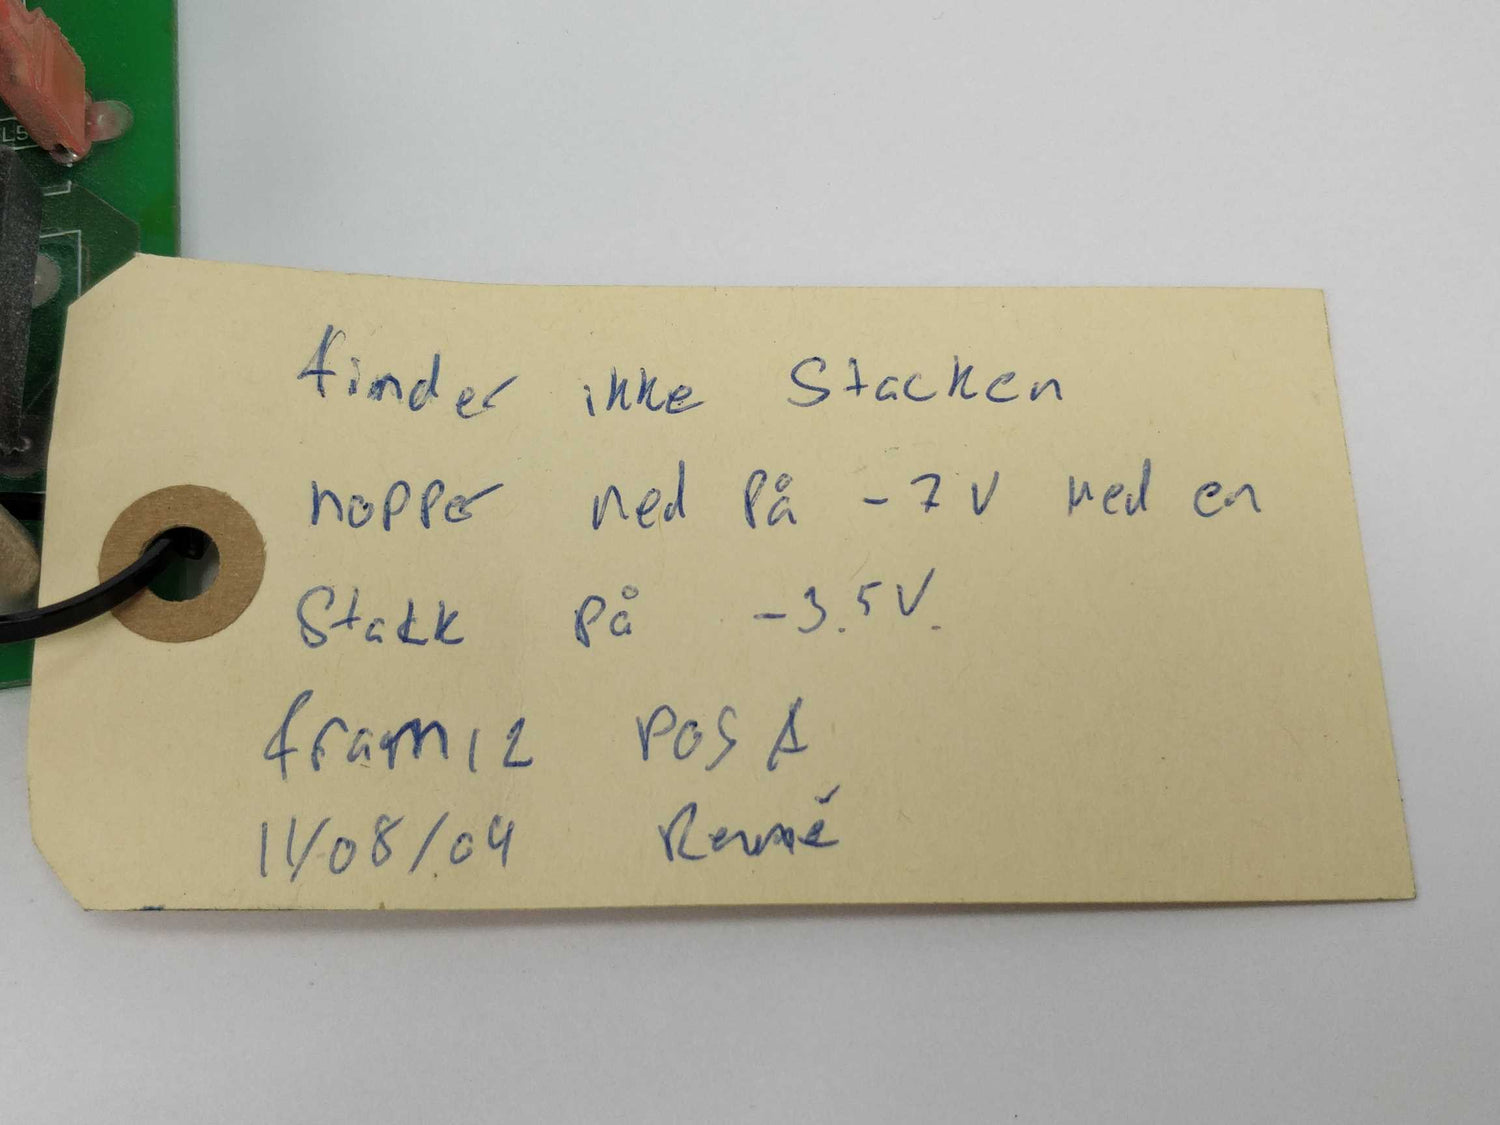 L5
finder ikke Stacken
hopper ned på -7V med en
Stakk på -3.5V.
fram12 Pos A
11/08/04